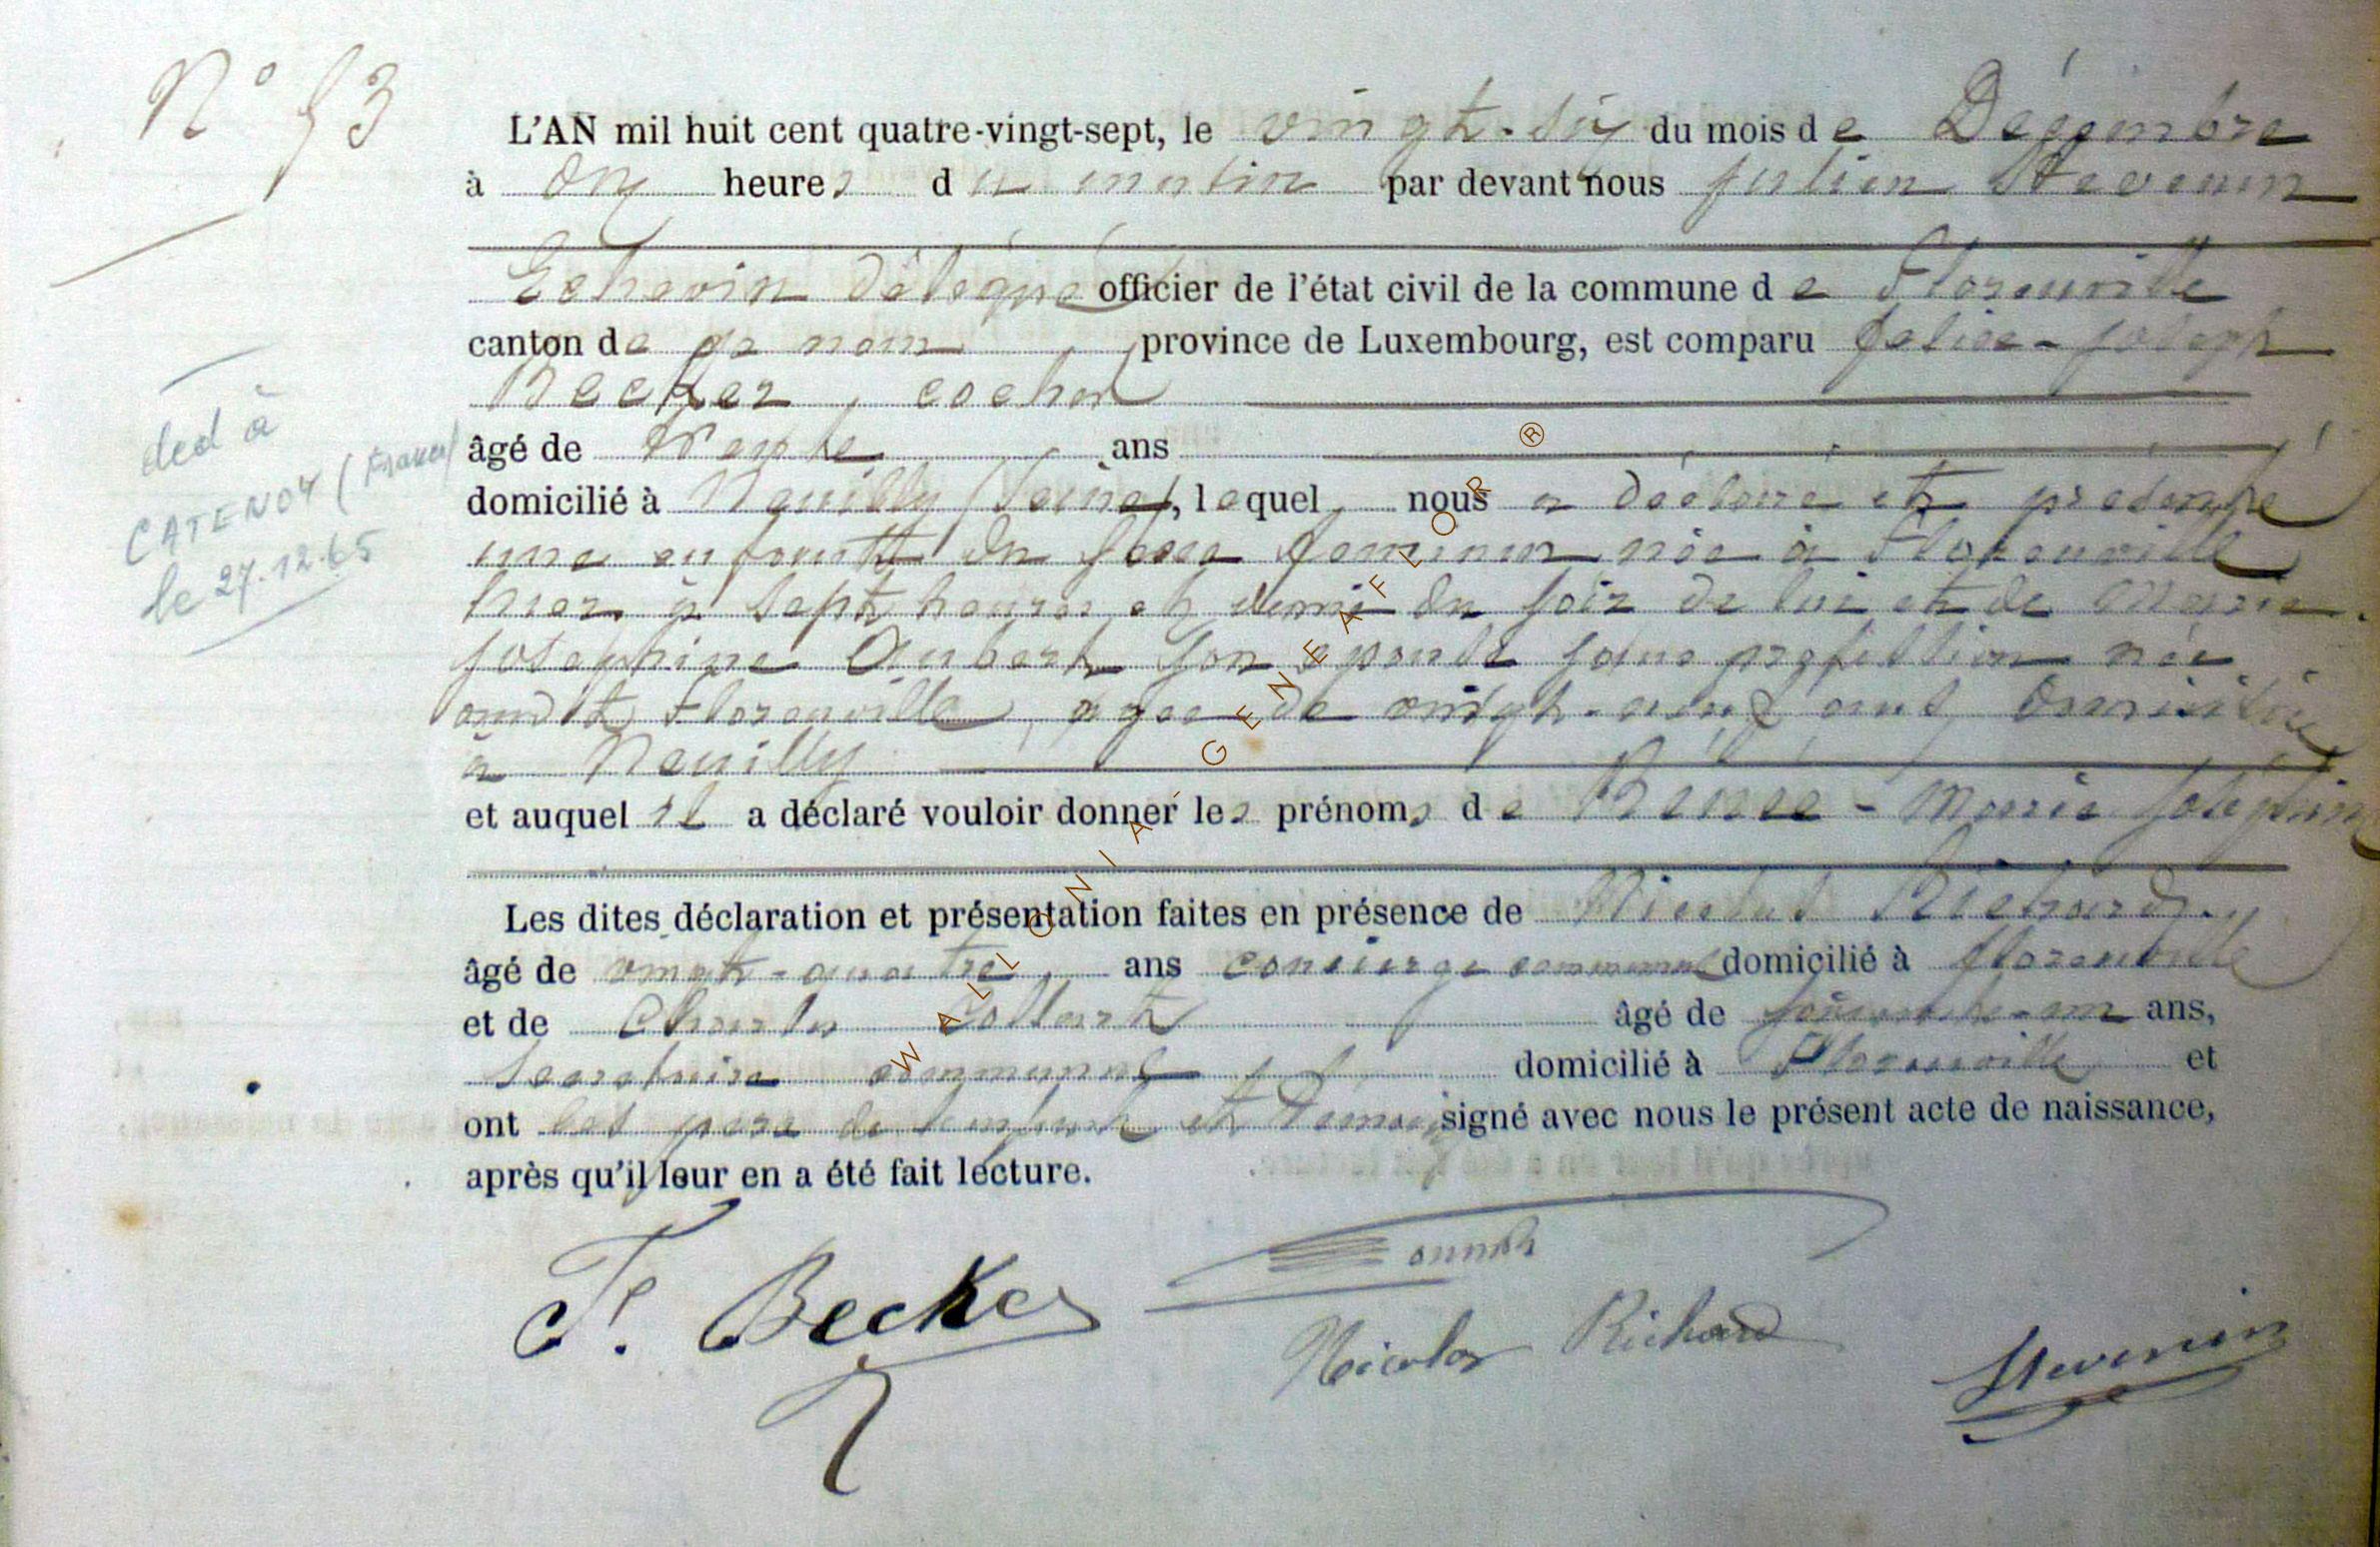 N° 53
L'AN mil huit cent quatre-vingt-sept, le vingt-six du mois de Décembre
à onze heures du matin par devant nous Julien Stevenin
Echevin délégué officier de l'état civil de la commune de Florenville
canton de ce nom province de Luxembourg, est comparu Felix-Joseph
Becker, cocher
âgé de trente ans
domicilié à Neuilly (Seine), lequel nous a déclaré et présenté
une enfant du sexe feminin née à Florenville
hier à sept heures et demi du soir de lui et de Marie
Josephine Aubert son épouse sans profession née
audit Florenville, agée de vingt-neuf ans, domiciliée
à Neuilly
et auquel il a déclaré vouloir donner les prénoms de Rénée-Marie Joséphine
Les dites déclaration et présentation faites en présence de Nicolas Richard
âgé de vingt-quatre ans concierge communal domicilié à Florenville
et de Charles Collart âgé de soixante-un ans,
Secretaire communal domicilié à Florenville et
ont les père de l'enfant et témoins signé avec nous le présent acte de naissance,
après qu'il leur en a été fait lecture.
F. Becker
Nicolas Richard
Stevenin
ded à
CATENOY (France)
le 27.12.65
WALLONIA - GENEAFLOR ®